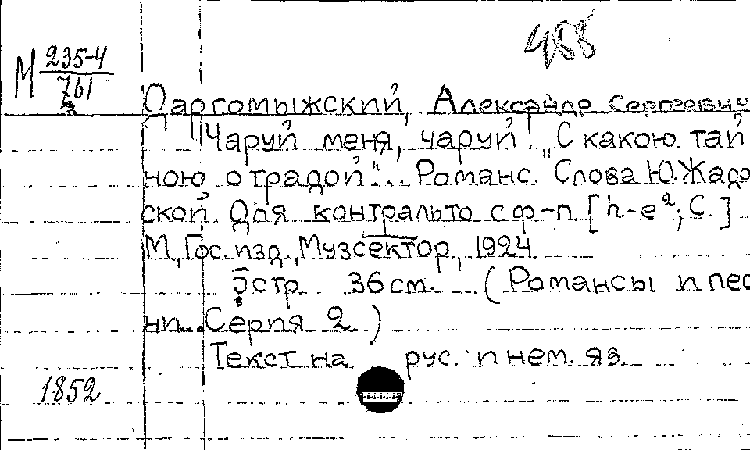 488
М 235-4
761
Даргомыжский, Александр Сергеевич
"Чаруй меня, чаруй! С какою тай
ною отрадой"... Романс. Слова Ю. Жадов
ской. Для контральто с ф-п [h-e²; C.]
М., Гос. изд., Музсектор, 1924
5 стр. 36 см. (Романсы и пес
ни. Серия 2)
Текст на рус. и нем. яз.
1852